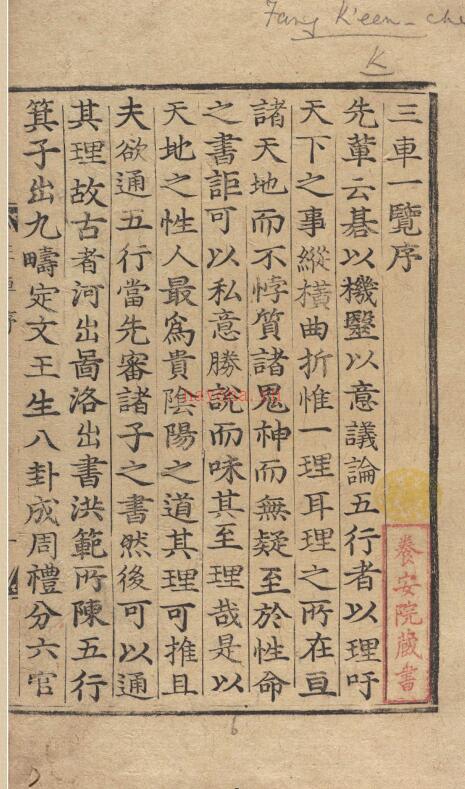 Fang K'een-che
K
三車一覽序
先輩云碁以機毉以意議論五行者以理吁
天下之事縱橫曲折惟一理耳理之所在亘
諸天地而不悖質諸鬼神而無疑至於性命
之書詎可以私意勝說而味其至理哉是以
天地之性人最爲貴陰陽之道其理可推且
夫欲通五行當先審諸子之書然後可以通
其理故古者河出啚洛出書洪範所陳五行
箕子出九疇定文王生八卦成周禮分六官
養安院藏書
6